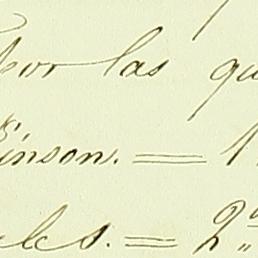 Por las qu
inson. = 1
les. = 2ª